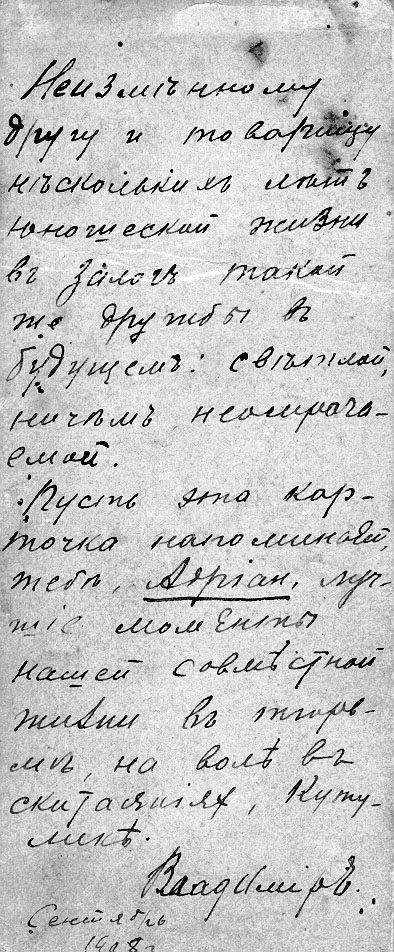 Неизмѣнному
другу и товарищу
нѣсколькихъ лѣтъ
юношеской жизни
въ залогъ такой
же дружбы въ
будущемъ: свѣтлой,
ничѣмъ неомрача-
емой.
Пусть эта кар-
точка напоминает,
тебѣ, Адріан, луч-
шіе моменты
нашей совмѣстной
жизни въ тюрь-
мѣ, на волѣ въ
скитаніях, Куту-
ликѣ.
Владиміръ.
Сентябрь